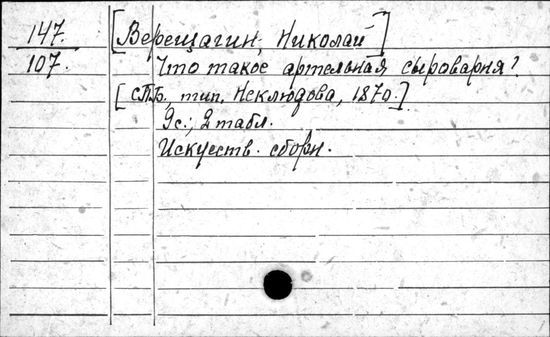 147.
107.
[Верещагин, Николай]
Что такое артельная сыроварня?
[СПБ, тип. Неклюдова, 1870.]
9с.; 2 табл.
Искусств. сборн.